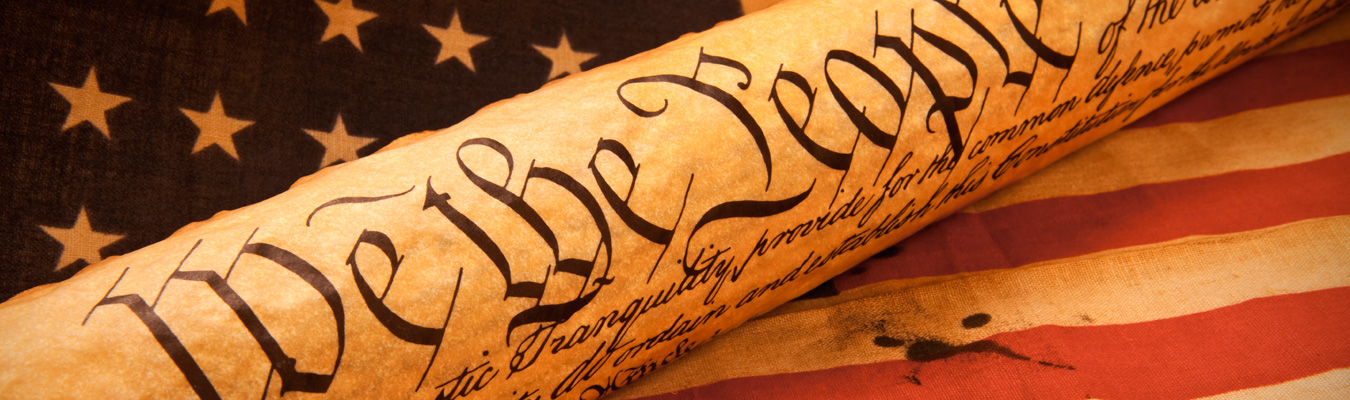 We the People of the
tic Tranquility, provide for the common defence, promote the
ity, do ordain and establish this Constitution for the
Article